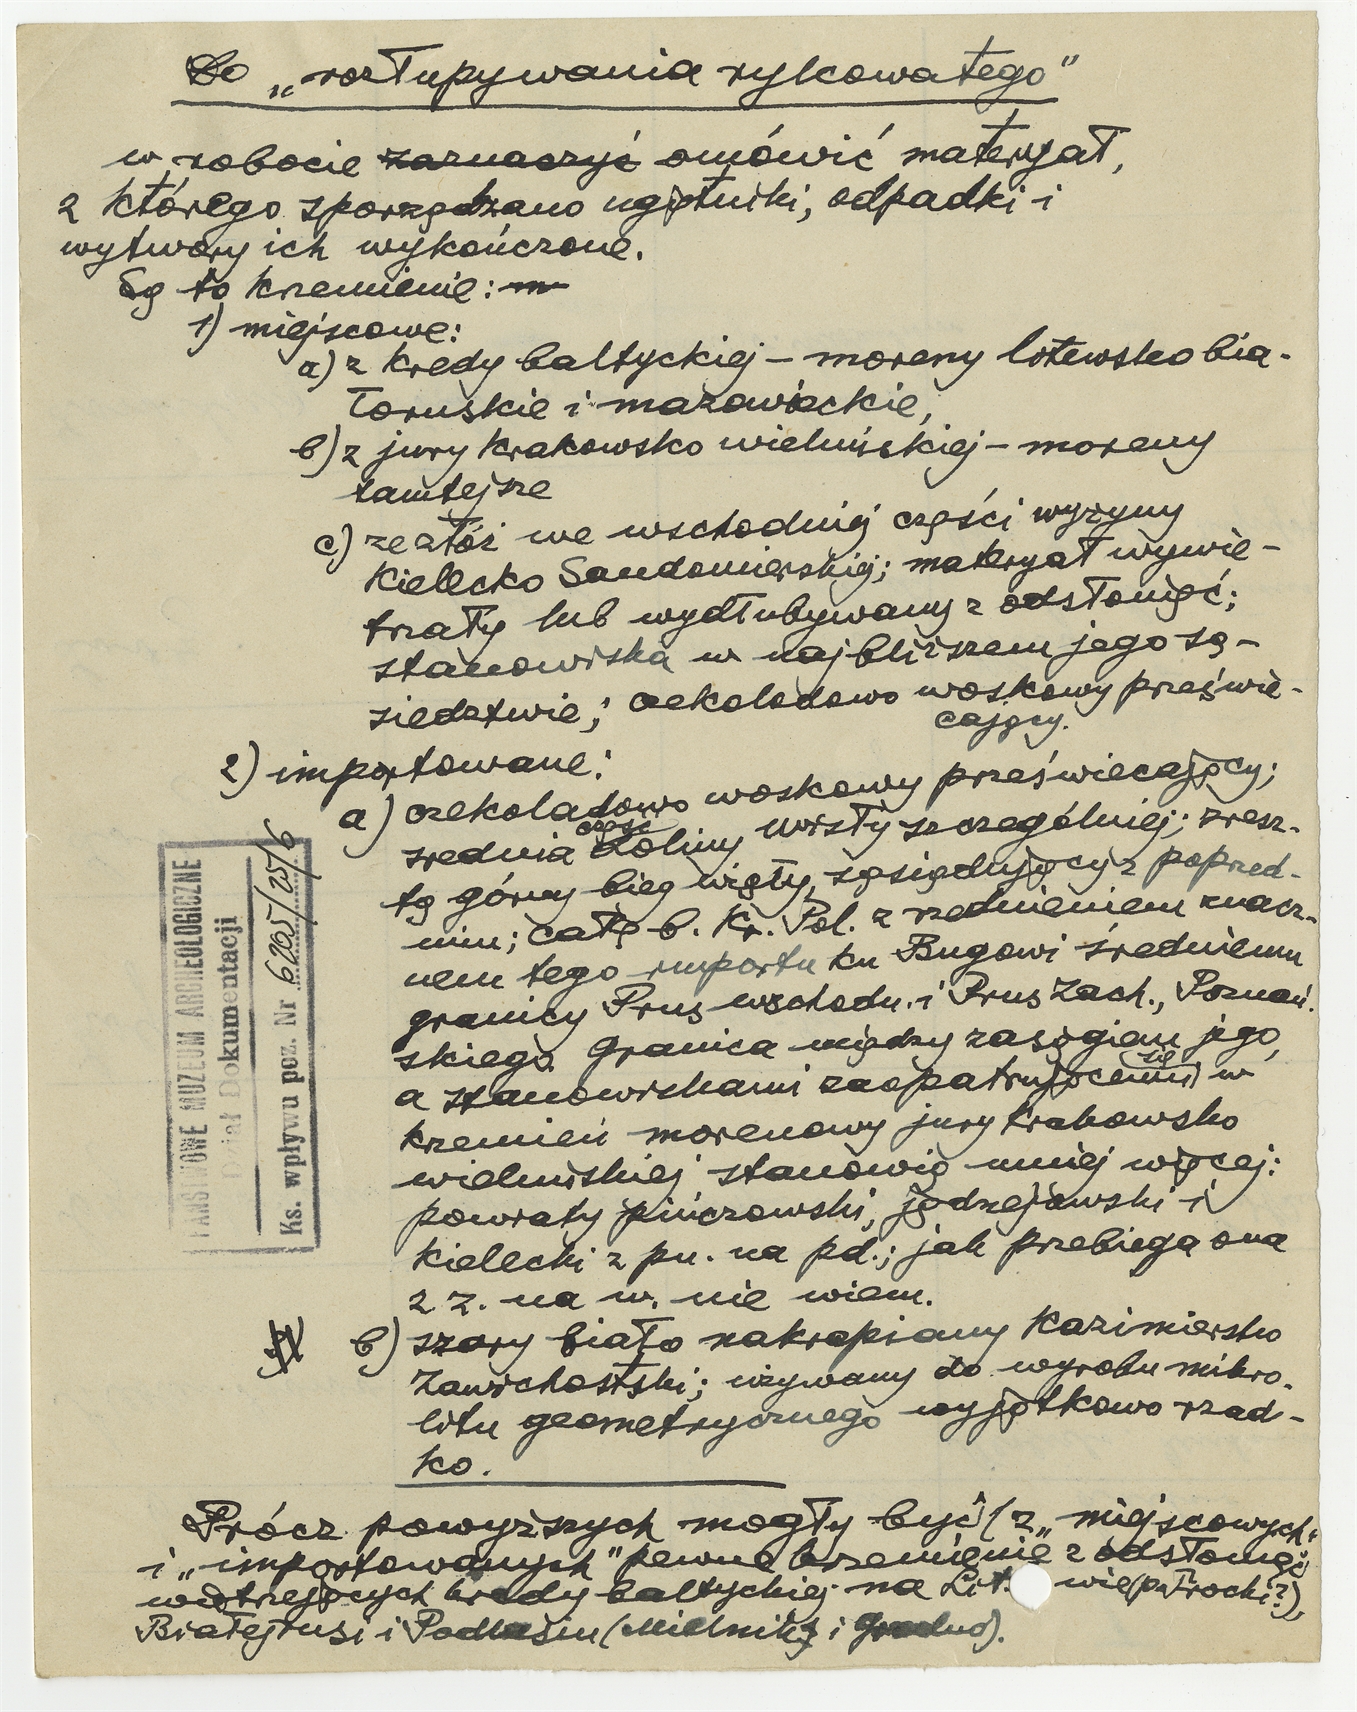 Do „rozłupywania rylcowatego"
w robocie zaznaczyć omówić materyał,
z którego sporządzano ugiętniki, odpadki i
wytwory ich wykończone.
Są to krzemienie:
1) miejscowe:
a) z kredy bałtyckiej – moreny łotewsko bia-
łoruskie i mazowieckie,
b) z jury krakowsko wieluńskiej – moreny
tamtejsze
c) ze złóż we wschodniej części wyżyny
Kielecko Sandomierskiej; materyał wywie-
trzały lub wydłubywany z odsłonięć;
stanowiska w najbliższem jego są-
siedztwie; czekoladowo woskowy prześwie-
cający.
2) importowane:
a) czekoladowo woskowy przeświecający;
średnia część doliny Wisły szczególniej; zresz-
tą górny bieg Wisły, sąsiadujący z poprzed-
nim; całe b. Kr. Pol. z rzednieniem znacz-
nem tego importu ku Bugowi średniemu
granicy Prus wschodn. i Prus Zach., Poznań-
skiego. Granica między zasięgiem jego,
a stanowiskami zaopatrującemi się w
krzemień morenowy jury krakowsko
wieluńskiej stanowią mniej więcej:
powiaty pińczowski, jędrzejowski i
Kielecki z pn. na pd.; jak przebiega ona
z z. na w. nie wiem.
b) szary biało nakrapiany Kazimiersko
Zawichostski; używany do wyrobu mikro-
litu geometrycznego wyjątkowo rzad-
ko.
Prócz powyższych mogły być (z „miejscowych"
i „importowanych" pewne krzemienie z odsłonięć
wietrzejących kredy bałtyckiej na Lit. wie (p. Troki?),
Białejrusi i Podlasiu (Mielnik i Grodno).
PAŃSTWOWE MUZEUM ARCHEOLOGICZNE
Dział Dokumentacji
Ks. wpływu poz. Nr 6205/25/6